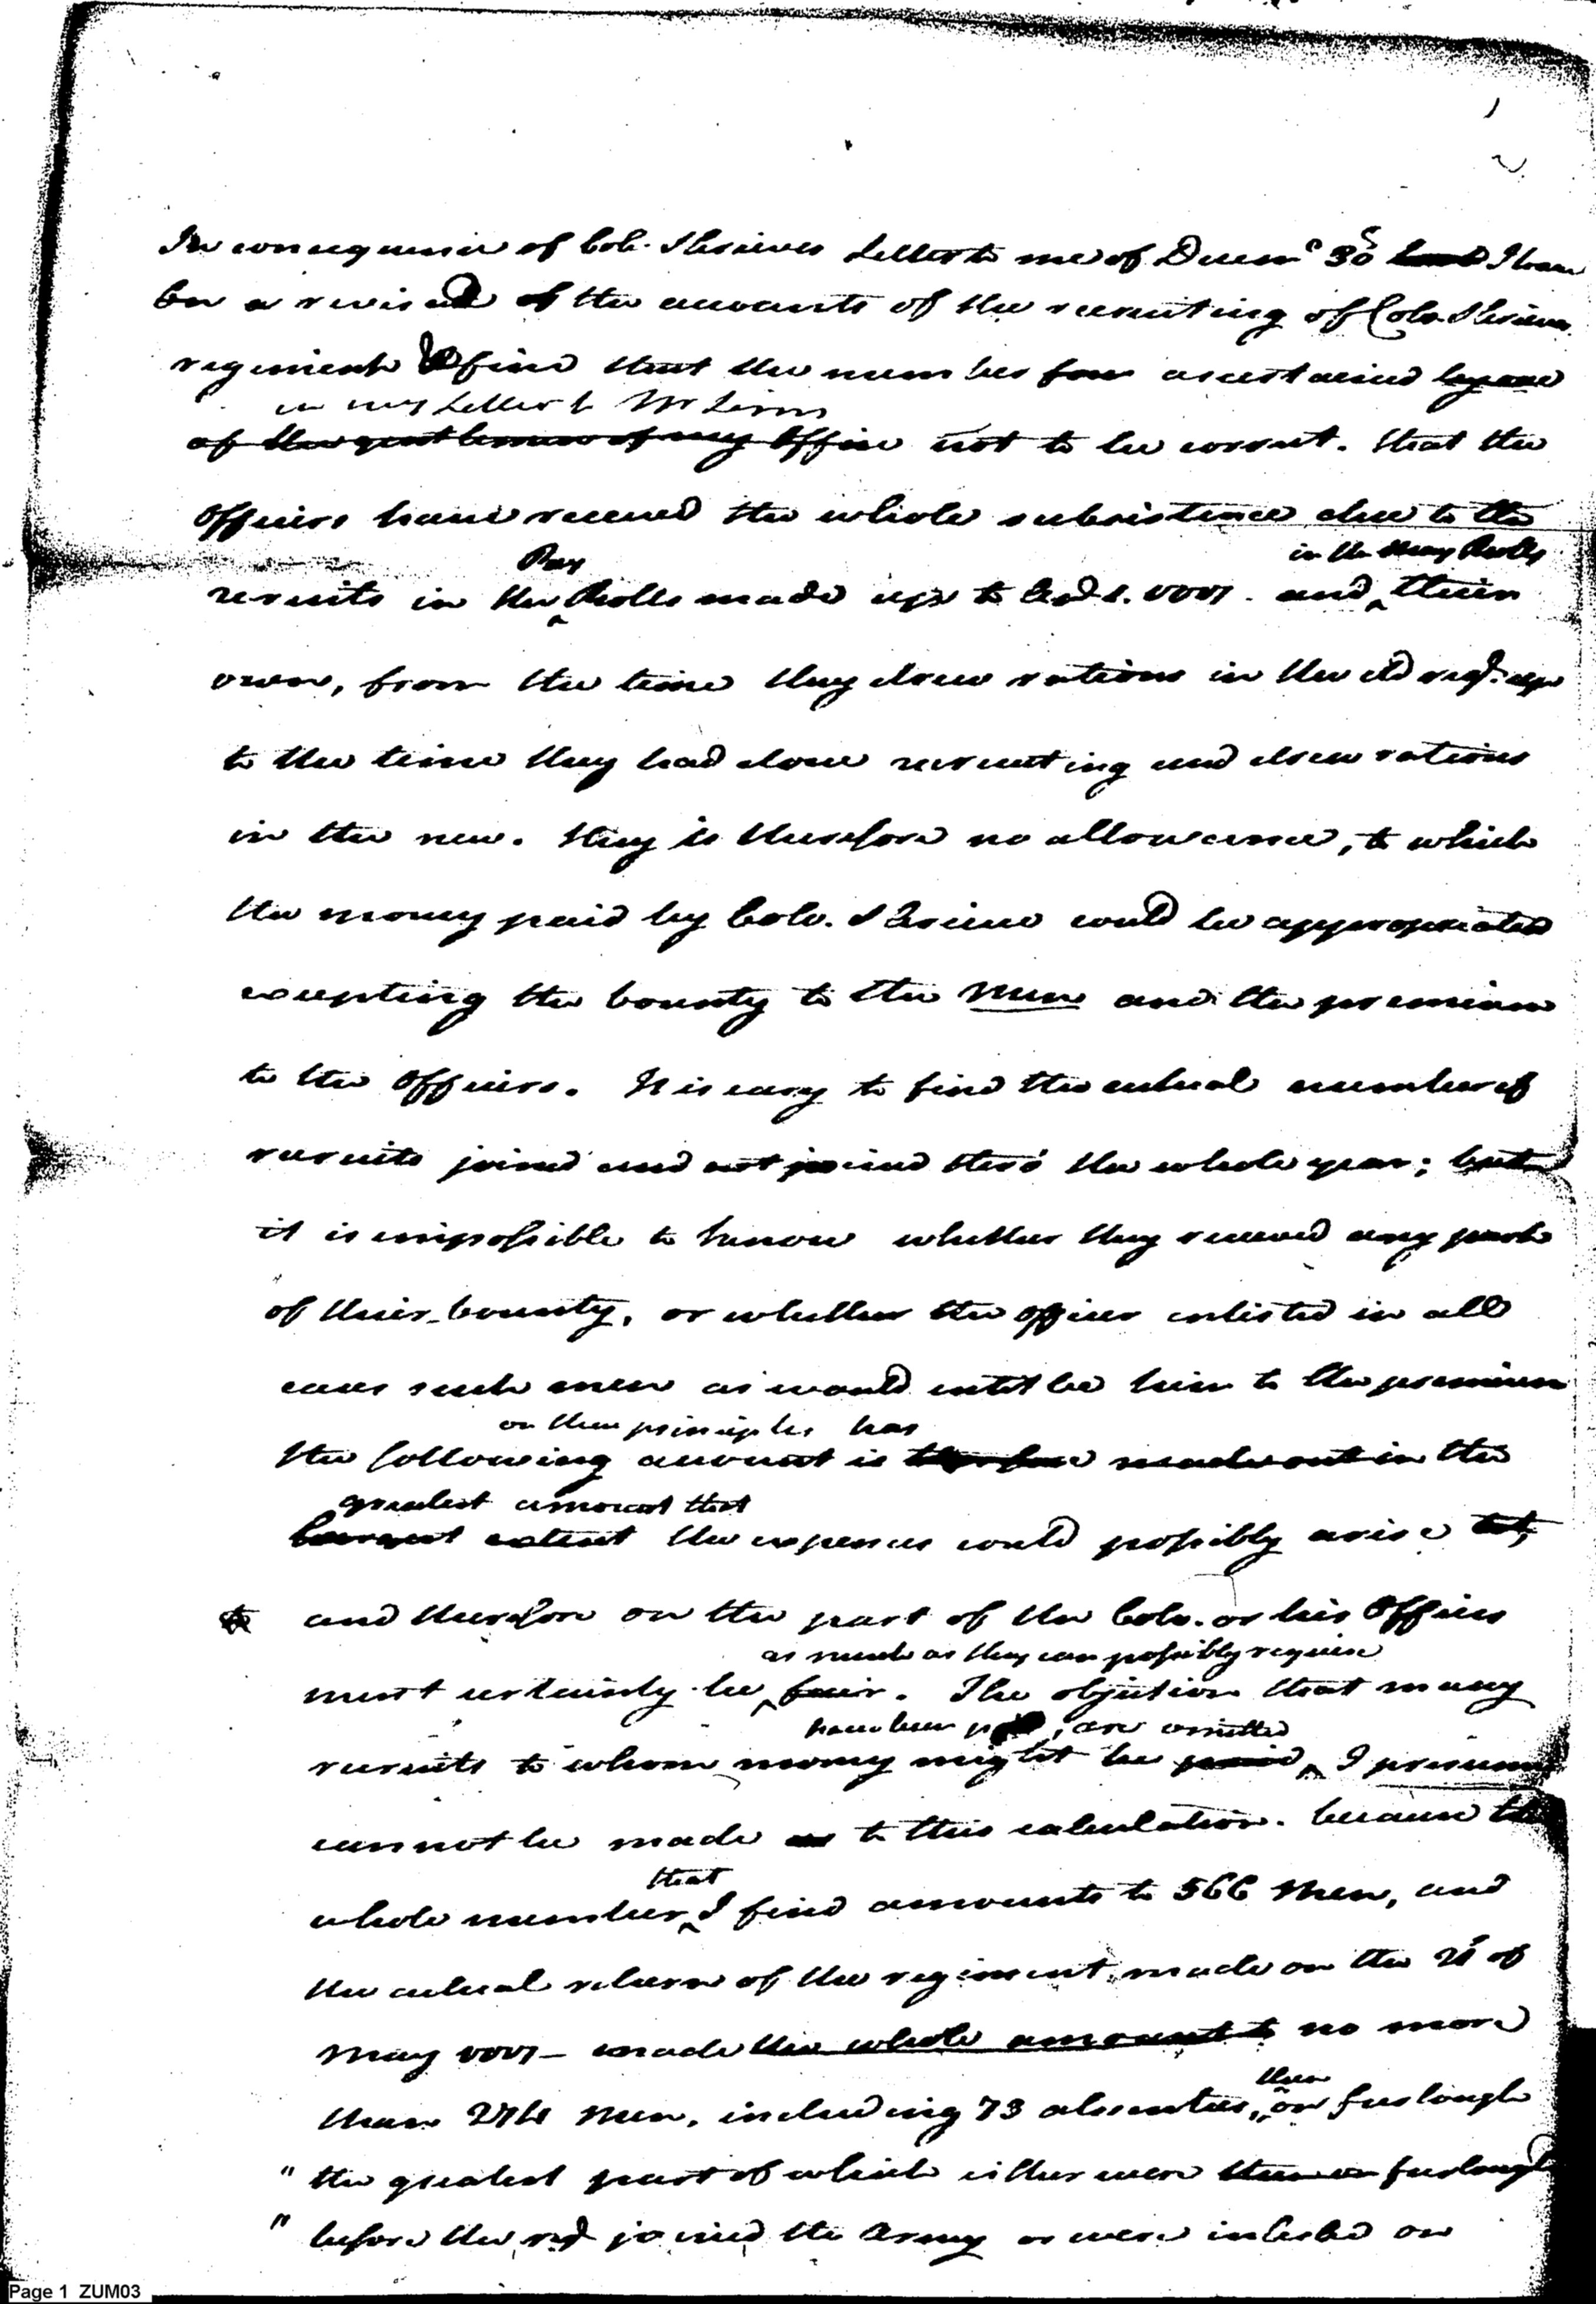 1
2
In consequence of Colo. Shrieves Letter to me of Decemr 30 last I have
on a revisal of the accounts of the recruiting of Colo. Shrieves
regiment find that the number ascertained by one
in my Letter to Mr Linn
of the gentlemen of my Office not to be correct. that the
Officers have received the whole subsistence due to the
Pay in the Rolls
recruits in the Rolls made up to and their
own, from the time they drew rations in the old regt. up
to the time they had done recruiting and drew rations
in the new. they is therefore no allowance, to which
the money paid by Colo. Shrieve could be appropriated
excepting the bounty to the Men and the premium
to the Officers. It is easy to find the actual number of
recruits joined and not joined thro' the whole year; but
it is impossible to know whether they received any part
of their bounty, or whether the officer enlisted in all
cases such men as would entitle him to the premium
on these principles has
the following account is therefore made out in the
greatest amount that
largest extent the expences could possibly arise to,
and therefore on the part of the Colo. or his Officers
as much as they can possibly require
must certainly be fair. The objection that many
have been paid, are omitted
recruits to whom money might be paid, I presume
cannot be made as to this calculation. because the
that
whole number I find amounts to 566 Men, and
the actual return of the regiment, made on the of
May made the whole amount to no more
then
than Men, including 73 absentees, on furlough
" the greatest part of which either were then on furlough
" before the regt joined the Army or were inlisted on
Page 1 ZUM03